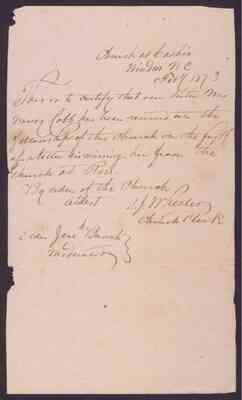 Church at Cashie
Windsor N C
1873
This is to certify that our Sister Mrs
Nancy Cobb has been received into the
fellowship of this Church on the
of a letter dismissing her from the
Church at Ross.
By order of the Church
Attest
Church Clerk
Moderator